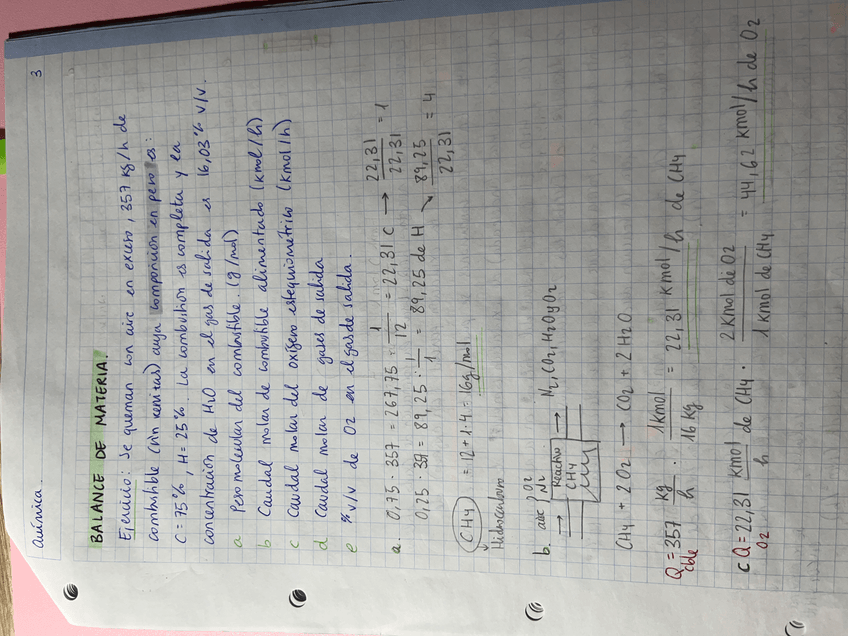 Química. 3
BALANCE DE MATERIA.
Ejercicio: Se queman con aire en exceso, 357 kg/h de
combustible (sin cenizas) cuya composición en peso es:
C = 75%, H = 25%. La combustion es completa y la
concentración de H2O en el gas de salida es 16,03% v/v.
a Peso molecular del combustible. (g/mol)
b Caudal molar de combustible alimentado (kmol/h)
c Caudal molar del oxígeno estequiométrico (kmol/h)
d Caudal molar de gases de salida
e % v/v de O2 en el gas de salida.
a. 0,75 · 357 = 267,75 · 1/12 = 22,31 C → 22,31/22,31 = 1
0,25 · 357 = 89,25 · 1/1 = 89,25 de H ↘ 89,25/22,31 = 4
CH4 = 12 + 1·4 = 16 g/mol
Hidrocarburo
b. aire O2 N2 → Reactivo CH4 → N2, CO2, H2O y O2
CH4 + 2O2 → CO2 + 2H2O
Q cble = 357 kg/h · 1kmol/16 kg = 22,31 kmol/h de CH4
c Q O2 = 22,31 kmol/h de CH4 · 2 kmol de O2/1 kmol de CH4 = 44,62 kmol/h de O2